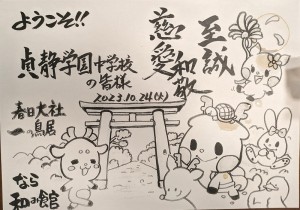 ようこそ!!
貞静学園中学校
の皆様
2023.10.24(火)
至誠
和敬
慈愛
春日大社
一の鳥居
なら
和み館